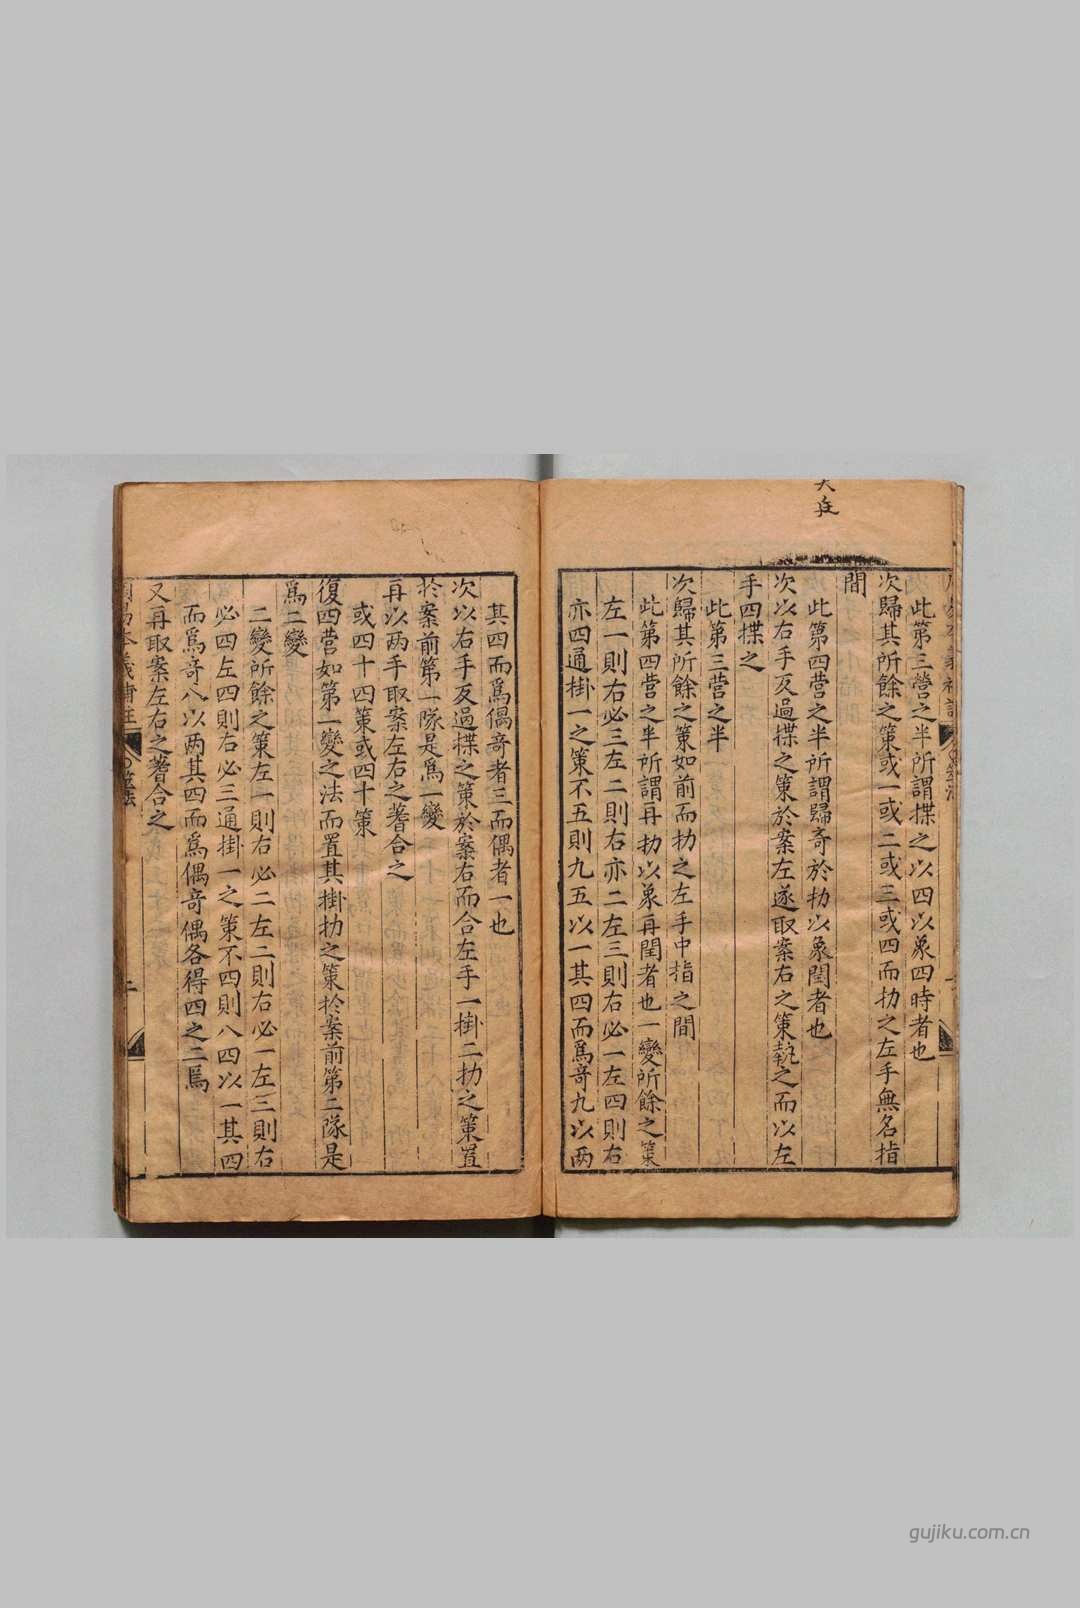 此第三營之半所謂揲之以四以象四時者也
次歸其所餘之策或一或二或三或四而扐之左手無名指
間
此第四营之半所謂歸奇於扐以象閏者也
次以右手反過揲之策於案左遂取案右之策執之而以左
手四揲之
此第三营之半
次歸其所餘之策如前而扐之左手中指之間
此第四营之半所謂再扐以象再閏者也一變所餘之策
左一則右必三左二則右亦二左三則右必一左四則右
亦四通掛一之策不五則九五以一其四而爲奇九以两
其四而爲偶奇者三而偶者一也
次以右手反過揲之策於案右而合左手一掛二扐之策置
於案前第一隊是爲一變
再以两手取案左右之蓍合之
或四十四策或四十策
復四营如第一變之法而置其掛扐之策於案前第二隊是
爲二變
二變所餘之策左一則右必二左二則右必一左三則右
必四左四則右必三通掛一之策不四則八四以一其四
而爲奇八以两其四而爲偶奇偶各得四之二焉
又再取案左右之蓍合之
筮法
gujiku.com.cn